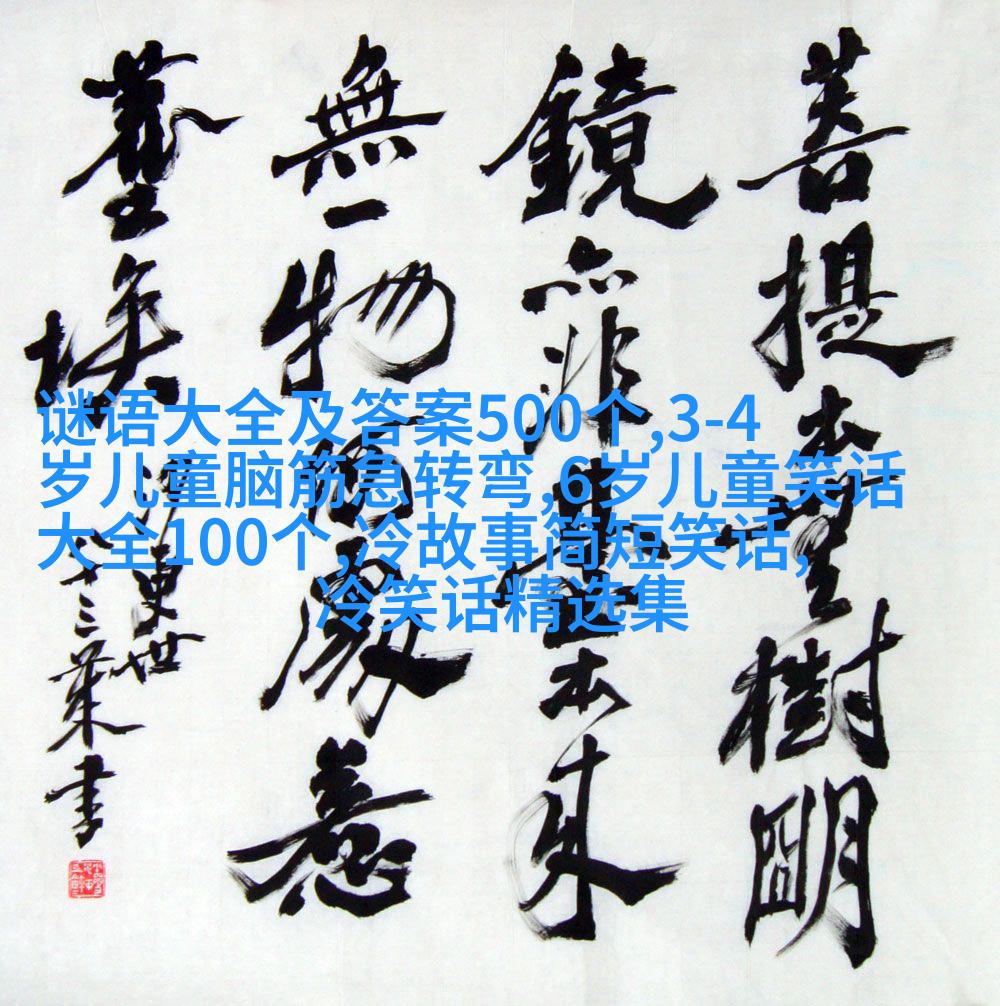 菩提本無樹明
鏡亦非臺本來
無一物何處惹
塵埃
谜语大全及答案500个,3-4
岁儿童脑筋急转弯,6岁儿童笑话
大全100个,冷故事简短笑话,
冷笑话精选集